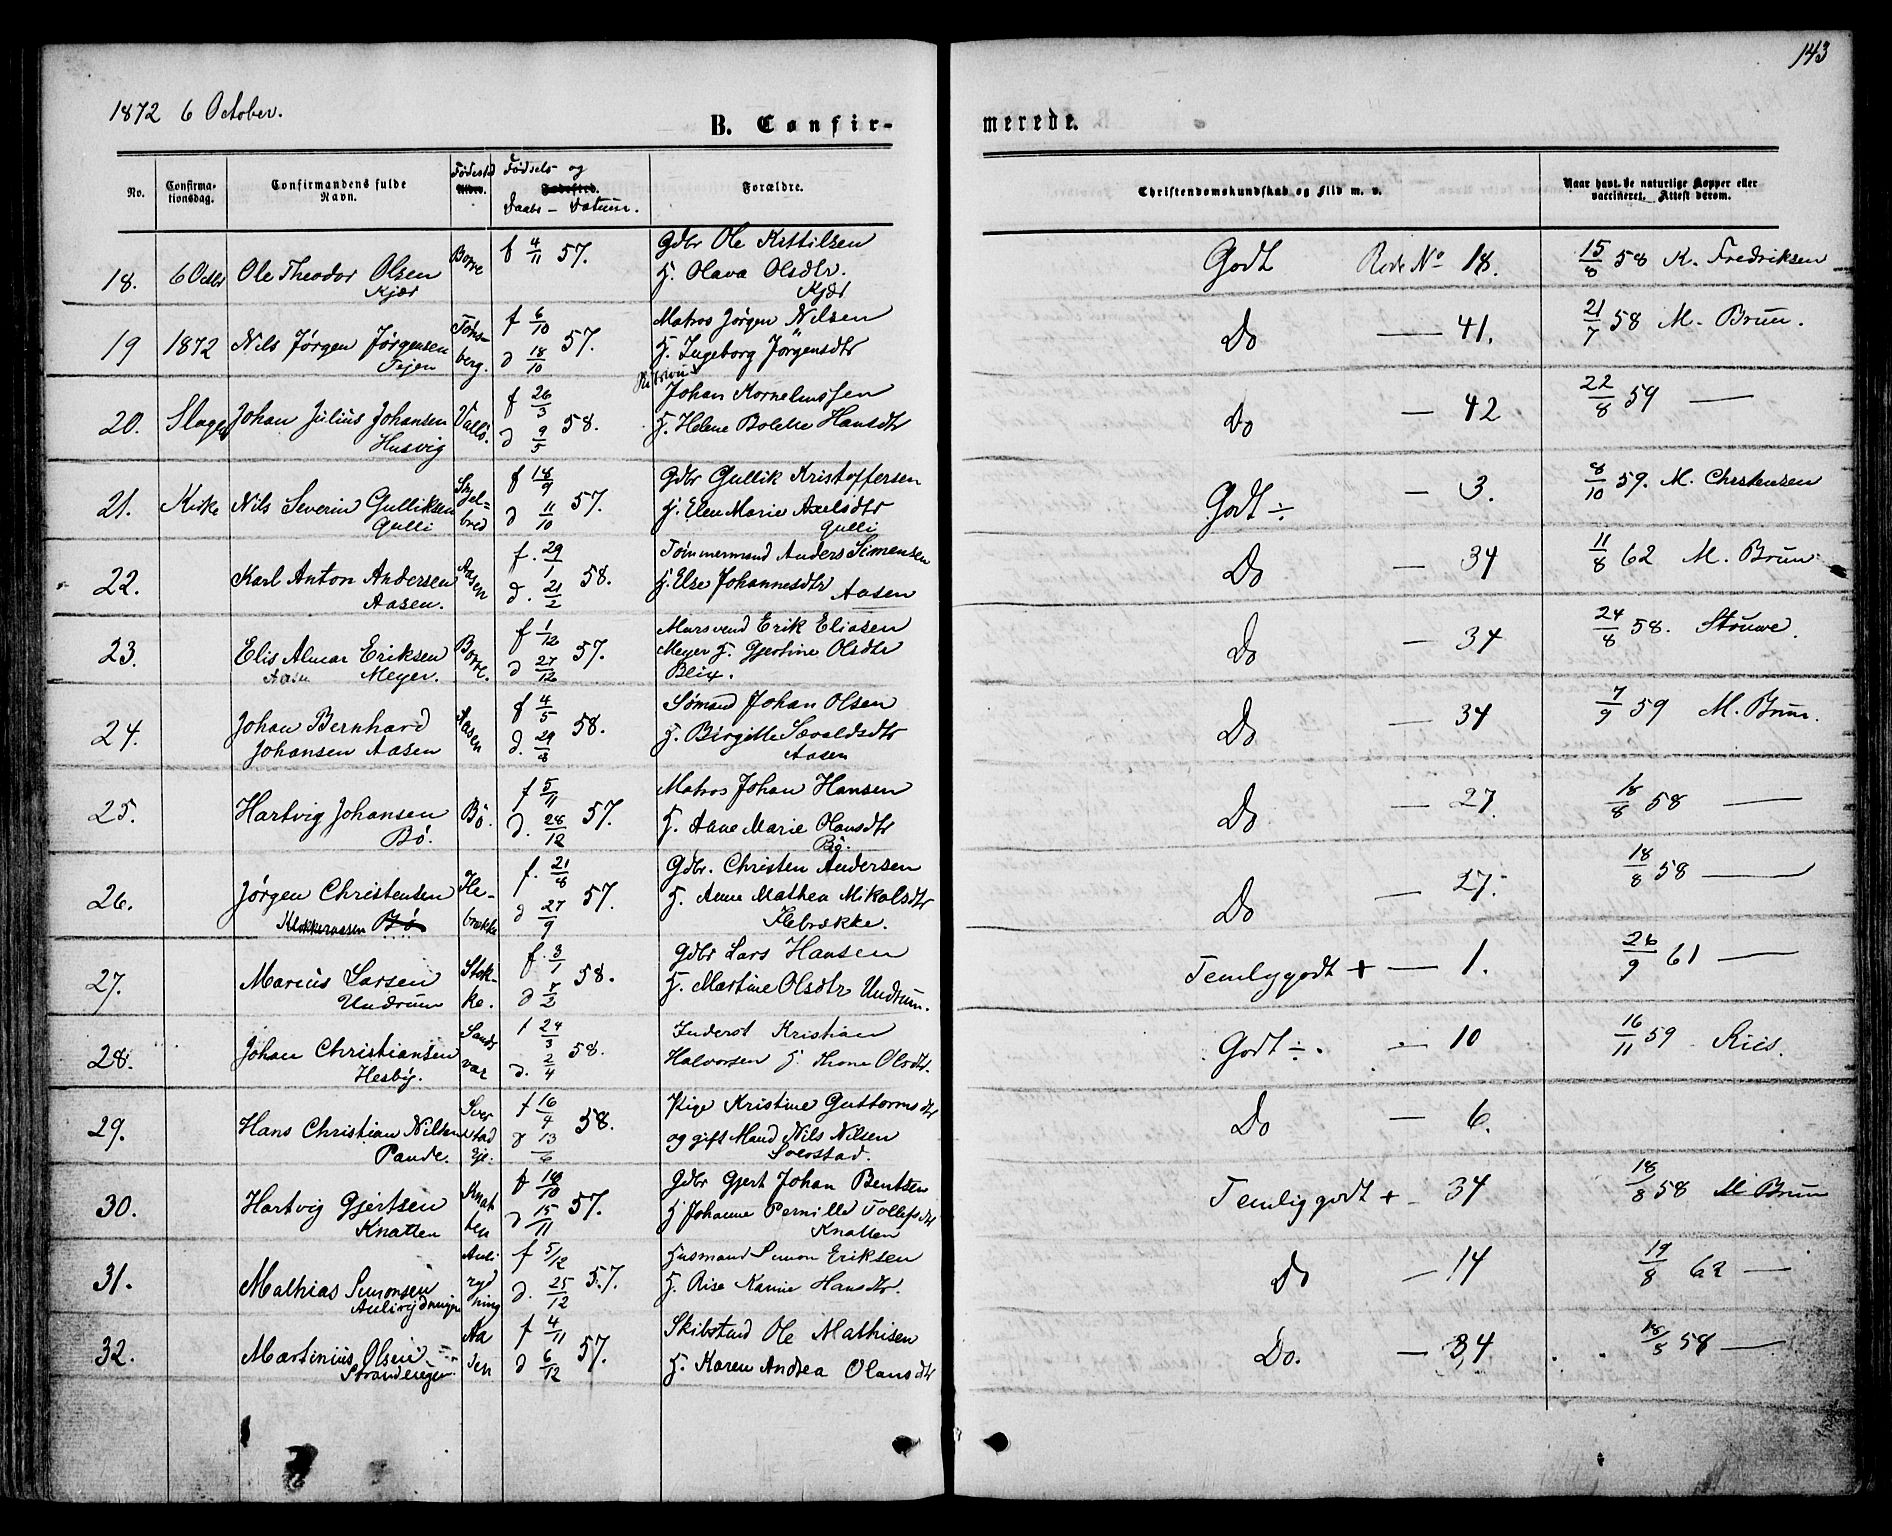 143
1872 6 October.
B. Confirmerede.
No.
Confirmationsdag.
Confirmandens fulde Navn.
Fødested
Alder.
Fødsels- og
Fødested.
Daabs - Datum.
Forældre.
Christendomskundskab og Flid m. v.
Naar havt de naturlige Kopper eller vaccineret. Attest derom.
18. 6 Octbr Ole Theodor Olsen Borre f 4/11 57. Gdbr Ole Kittilsen Godt Rode No 18. 15/8 58 K. Fredriksen
Kjær H. Olava Olsdtr.
Kjær
19 1872 Nils Jørgen Jørgensen Tøns- f 6/10 57. Matros Jørgen Nilsen Do — 41. 21/7 58 M. Brun.
Tejen berg. d 18/10 H. Ingeborg Jørgensdtr
20. Slagen Johan Julius Johansen Vallö. f 26/3 58. Johan Kornelinssen Do — 42 22/8 59 —
Husvig d 9/5 H. Helene Bolette Hansdtr
21. Kirke Nils Severin Gulliksen f 18/9 57. Gdbr Gullik Kristoffersen Godt ÷ — 3. 8/10 59. M. Chrstensen
Gulli bred d 11/10 H. Elen Marie Axelsdtr
Gulli
22. Karl Anton Andersen Aasen f. 29/1 58. Tømmermand Anders Simensen Do — 34 11/8 62 M. Brun
Aasen. d. 21/2 H. Else Johannesdtr Aasen
23. Elis Almar Eriksen Borre. f 1/12 57. Mursvend Erik Eliasen Do — 34 24/8 58. Stouwe.
Aasen Meyer. d 27/12 Meyer H. Gjertine Olsdtr
Blix.
24. Johan Bernhard Aasen f 4/5 58. Sømand Johan Olsen Do — 34 7/9 59 M. Brun.
Johansen Aasen d. 29/8 H. Birgitte Sævaldsdtr
Aasen
25. Hartvig Johansen Bö. f 5/11 57. Matros Johan Hansen Do — 27. 18/8 58 —
Bö. d. 28/12 H. Anne Marie Olausdtr
Bö.
26. Jörgen Christensen He- f. 21/8 57. Gdbr. Christen Andersen Do — 27. 18/8 58 —
Klokkeraasen Bö brække d 27/9 H. Anne Mathea Mikalsdtr
Hebrække.
27. Marius Larsen Stok- f. 3/1 58. Gdbr Lars Hansen Temlyggodt + — 1. 26/9 61 —
Undrum ke. d 7/2 H. Martine Olsdtr Undrum.
28. Johan Christiansen Sands f 24/3 58. Inderst Kristian Godt ÷. — 10 16/11 59
Hesby. vær d. 2/4 Halvorsen H. Thone Olsdtr.
29. Hans Christian Nilsen f 16/4 58. Pige Kristine Guttormsdtr Do — 6.
Pande. stad d 13/6 og gift Mand Nils Nilsen
Eje.
30. Hartvig Gjertsen Knat f 18/10 57. Gdbr Gjert Johan Bentsen Temliggodt + — 34 18/8 58 M. Brun
Knatten ten d 15/11 H Johanne Pernille Tollefsdtr
Knatten
31. Mathias Simonsen Auli f 5/12 57. Husmand Simon Eriksen Do — 14 19/8 62 —
Aulirydningen ryd ning d. 25/12 H. Karine Hansdtr.
32. Martinius Olsen Aa f 4/11 57. Skibstmd Ole Mathisen Do. — 34 18/8 58 —
sen d 6/12 H. Karen Andrea Olausdtr